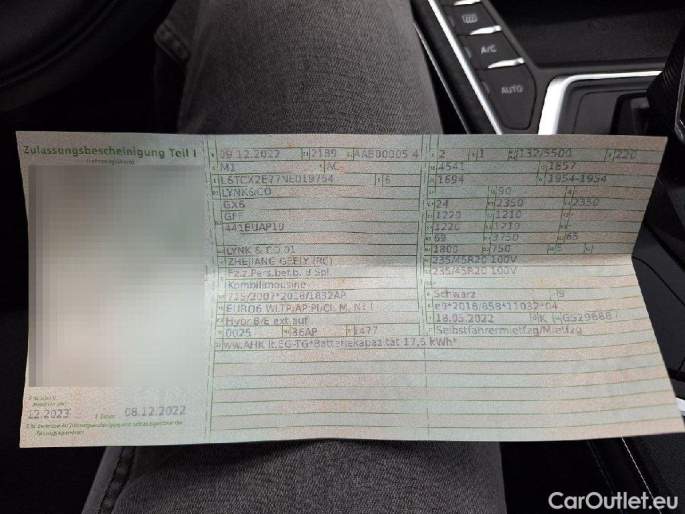 Zulassungsbescheinigung Teil I
09.12.2022 2189 AAB00005 4 2 1 132/5500 220
M1 AC 4541 1857
L6TCX2E77NE019754 6 1694 1954-1954
LYNK&CO 90
GX6 24 2350 2350
GFF 1220 1210
441EUAP10 1220 1210
69 3750 65
LYNK & CO 01 1800 750 5
ZHEJIANG GEELY (RC) 235/45R20 100V
Fz.z.Pers.bef.b. 8 Spl. 235/45R20 100V
Kombilimousine
715/2007*2018/1832AP Schwarz 9
EURO6 WLTP;AP:PI/CI; M, N1 I e9*2018/858*11032*04
Hybr.B/E ext.auf 18.05.2022 K
0025 36AP Selbstfahrermietfzg/Mietfzg
ww.AHK lt.EG-TG*Batteriekapazität 17,6 kWh*
12.2023 08.12.2022
A/C
AUTO
CarOutlet.eu